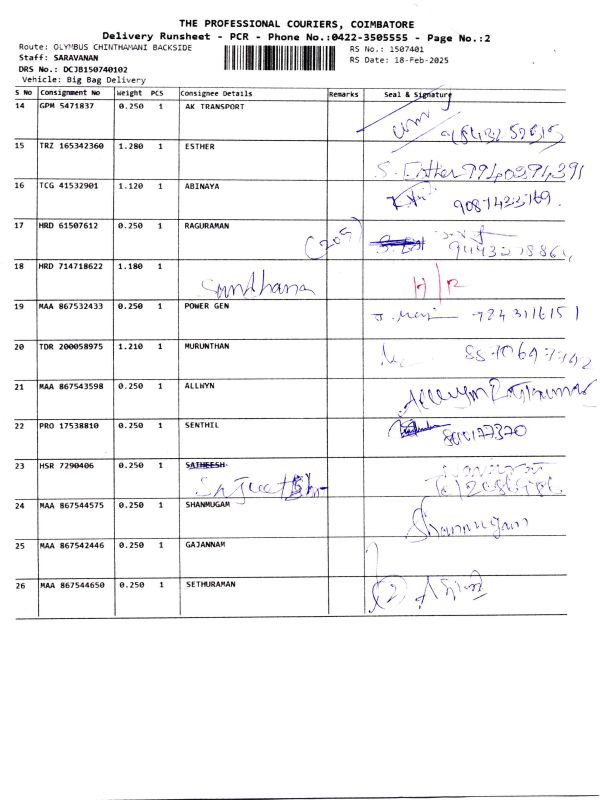 THE PROFESSIONAL COURIERS, COIMBATORE
Delivery Runsheet - PCR - Phone No.:0422-3505555 - Page No.:2
Route: OLYMBUS CHINTHAMANI BACKSIDE RS No.: 1507401
Staff: SARAVANAN RS Date: 18-Feb-2025
DRS No.: DCJB150740102
Vehicle: Big Bag Delivery
S No Consignment No Weight PCS Consignee Details Remarks Seal & Signature
14 GPM 5471837 0.250 1 AK TRANSPORT
15 TRZ 165342360 1.280 1 ESTHER
S. Esther 9940394391
16 TCG 41532901 1.120 1 ABINAYA
9087433769.
17 HRD 61507612 0.250 1 RAGURAMAN
(205)
18 HRD 714718622 1.180 1
19 MAA 867532433 0.250 1 POWER GEN
20 TDR 200058975 1.210 1 MURUNTHAN
21 MAA 867543598 0.250 1 ALLWYN
22 PRO 17538810 0.250 1 SENTHIL
23 HSR 7290406 0.250 1 SATHEESH
24 MAA 867544575 0.250 1 SHANMUGAM
Shanmugam
25 MAA 867542446 0.250 1 GAJANNAM
26 MAA 867544650 0.250 1 SETHURAMAN
(2)